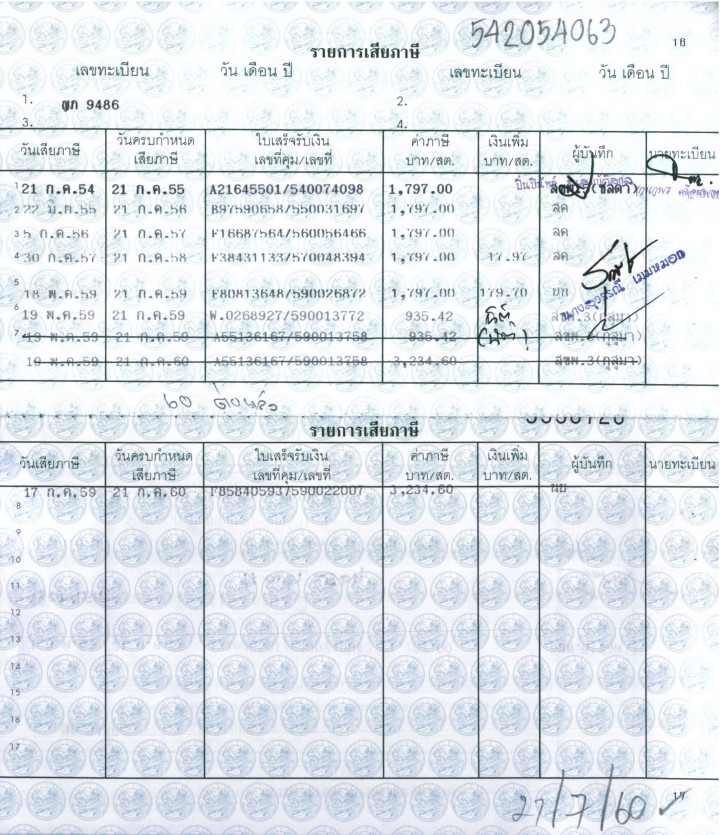 542054063
18
รายการเสียภาษี
เลขทะเบียน วัน เดือน ปี เลขทะเบียน วัน เดือน ปี
1. ญภ 9486 2.
3. 4.
วันเสียภาษี วันครบกำหนดเสียภาษี ใบเสร็จรับเงิน เลขที่คุม/เลขที่ ค่าภาษี บาท/สต. เงินเพิ่ม บาท/สต. ผู้บันทึก นายทะเบียน
1 21 ก.ค.54 21 ก.ค.55 A21645501/540074098 1,797.00
2 22 มิ.ย.55 21 ก.ค.56 B97590658/550031697 1,797.00 สด
3 5 ก.ค.56 21 ก.ค.57 F16687564/560056466 1,797.00 สด
4 30 ก.ค.57 21 ก.ค.58 F38431133/570048394 1,797.00 17.97 สด
5 18 พ.ค.59 21 ก.ค.59 F80813648/590026872 1,797.00 179.70
6 19 พ.ค.59 21 ก.ค.59 W.0268927/590013772 935.42 สขพ.3(กุสุมา)
7 19 พ.ค.59 21 ก.ค.59 A55136167/590013758 935.42 สขพ.3(กุสุมา)
19 พ.ค.59 21 ก.ค.59 A55136167/590013758 3,234.60 สขพ.3(กุสุมา)
60
รายการเสียภาษี
วันเสียภาษี วันครบกำหนดเสียภาษี ใบเสร็จรับเงิน เลขที่คุม/เลขที่ ค่าภาษี บาท/สต. เงินเพิ่ม บาท/สต. ผู้บันทึก นายทะเบียน
17 ก.ค.59 21 ก.ค.60 F85840593/590022007 3,234.60 นบ
8
9
10
11
12
13
14
15
16
17
27/7/60
19